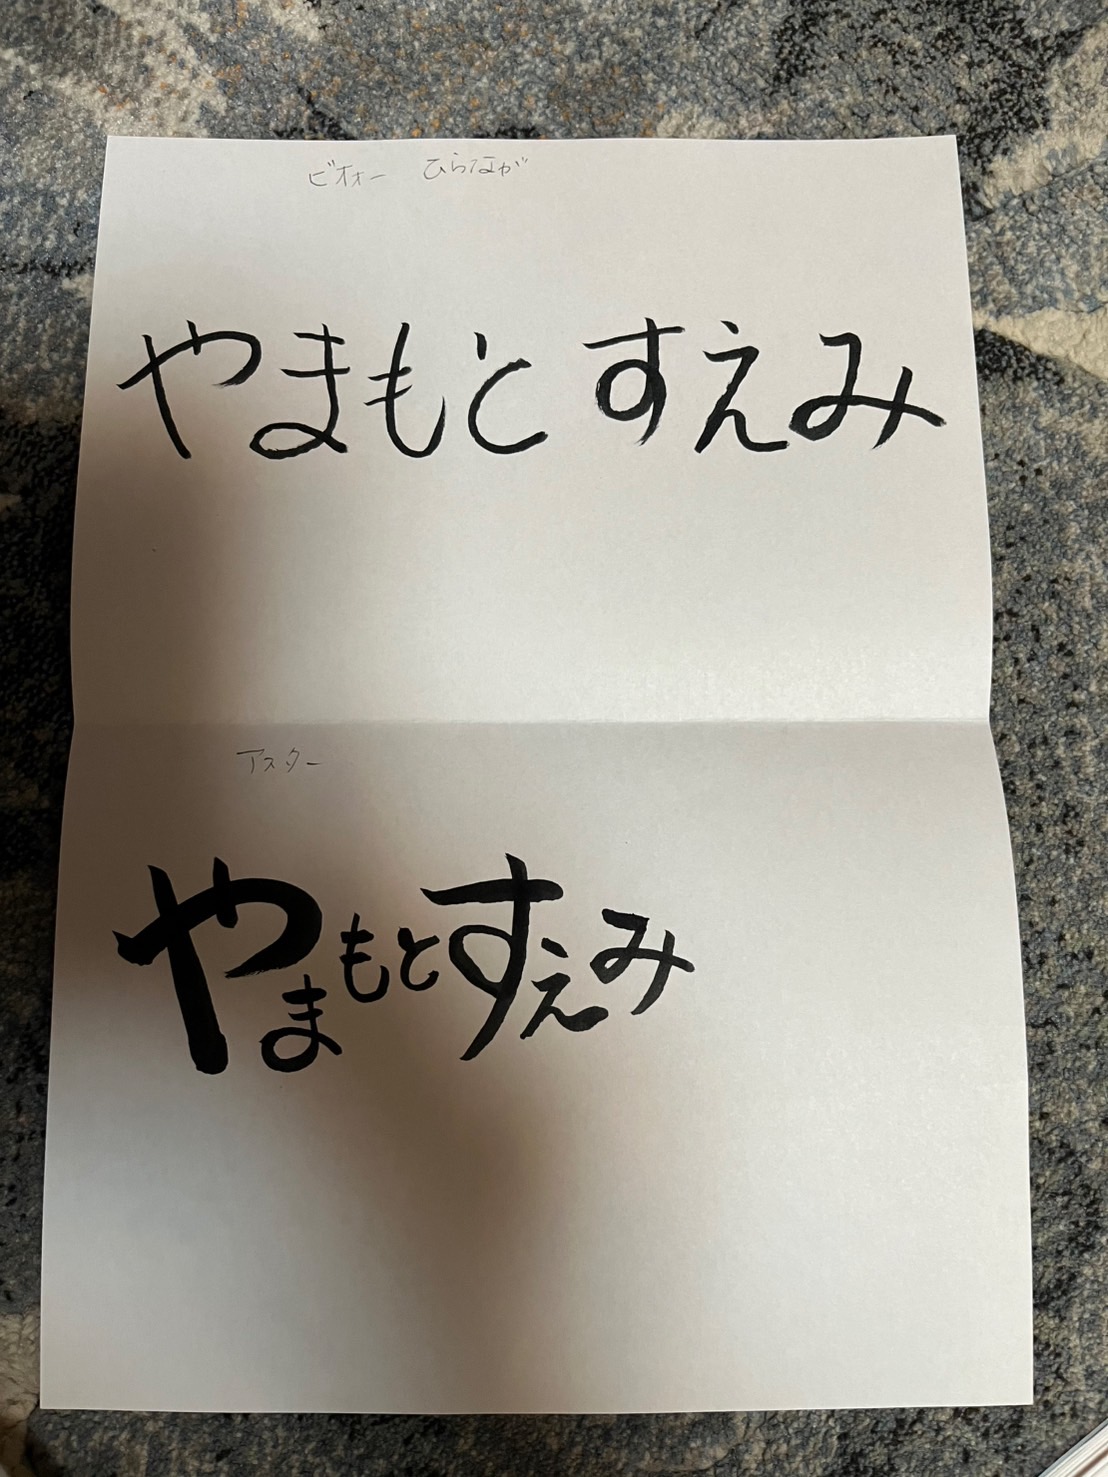 ビオォー ひらなが
やまもと すえみ
アスター
やまもとすえみ